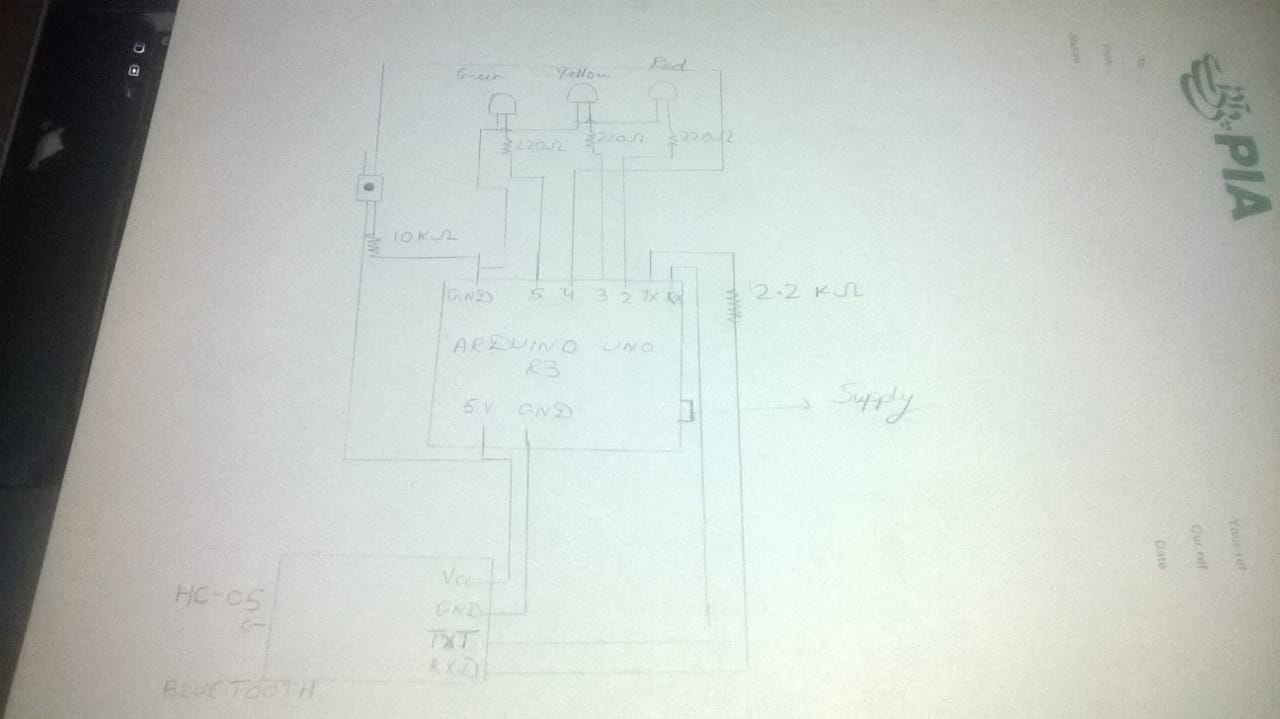 Green Yellow Red
220Ω 220Ω 220Ω
10KΩ
GND 5 4 3 2 TX RX
2.2 KΩ
ARDUINO UNO
R3
5V GND
Supply
HC-05
Vcc
GND
TXT
RXD
BLUETOOTH
PIA
Your ref
Our ref
Date